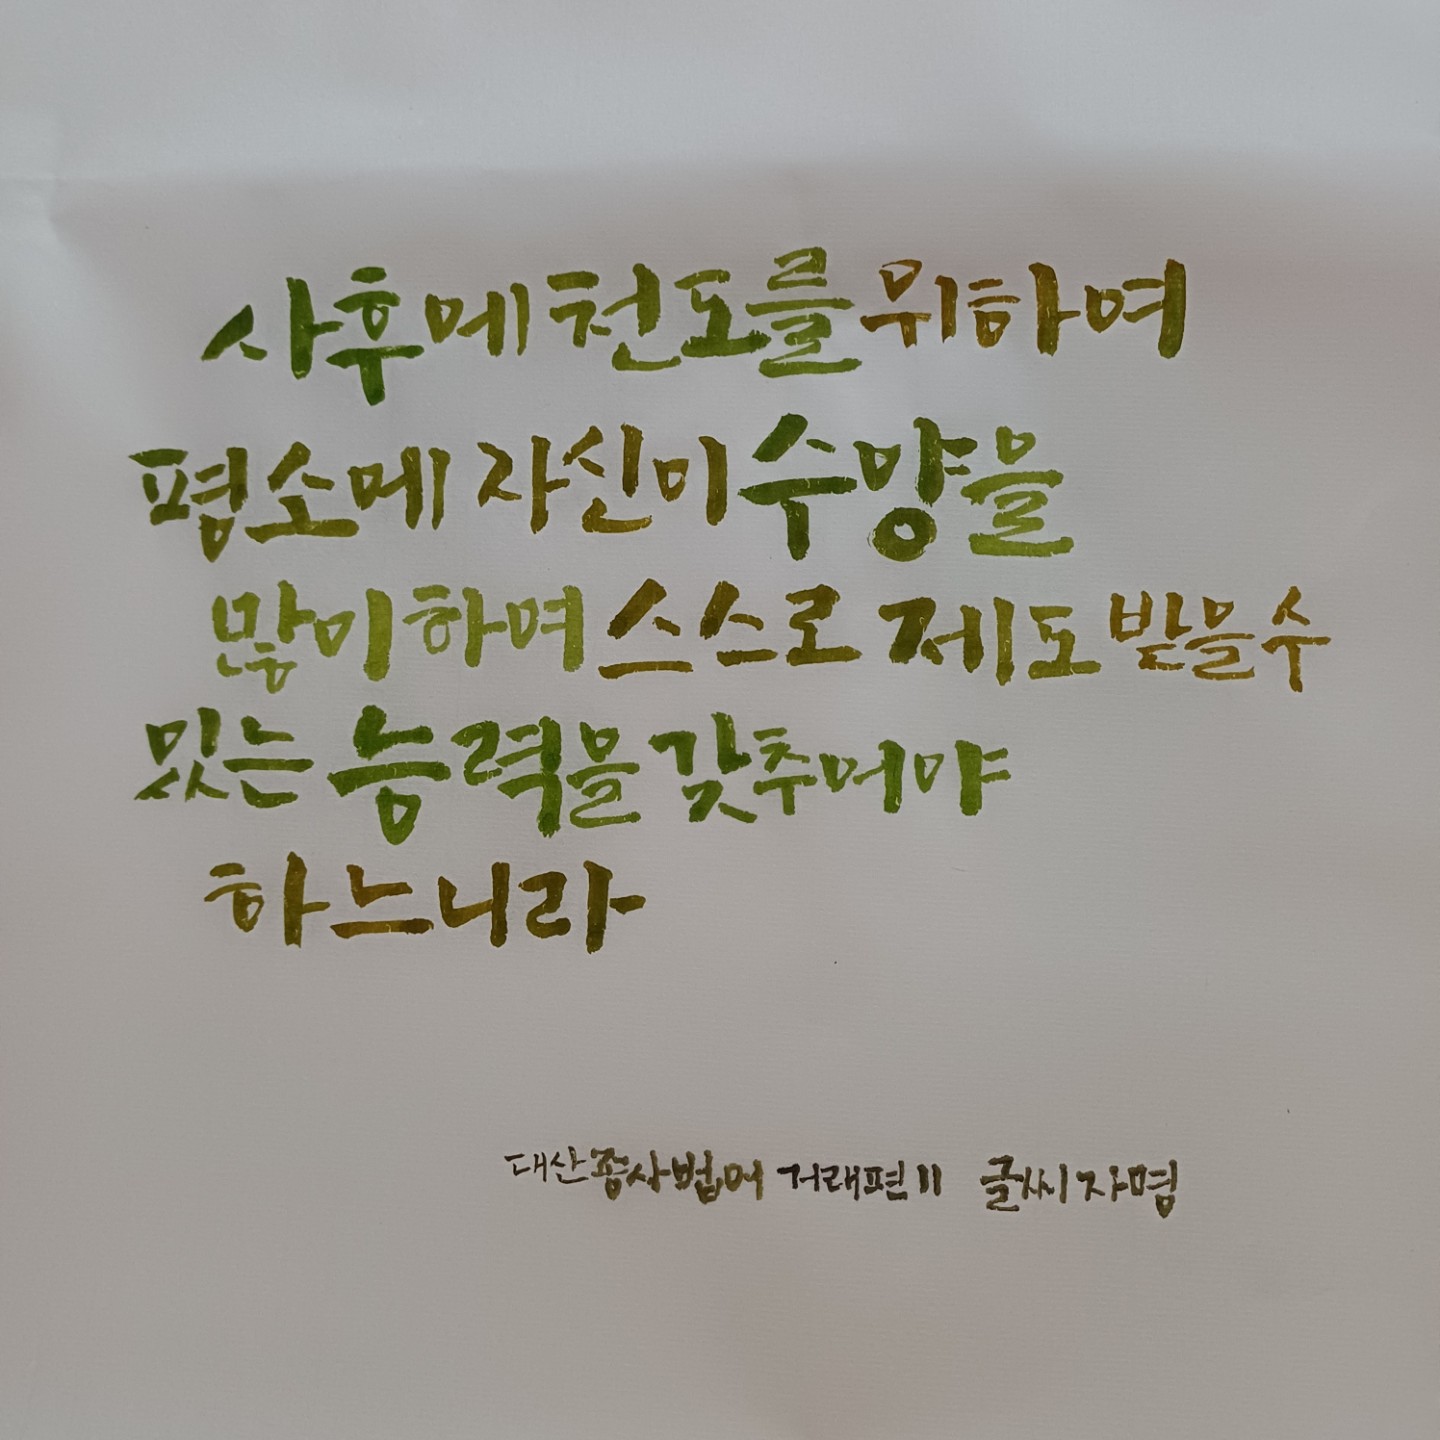 사후에 천도를 위하여
평소에 자신이 수양을
많이 하며 스스로 제도 받을 수
있는 능력을 갖추어야
하느니라
대산종사법어 거래편 11 글씨 자명